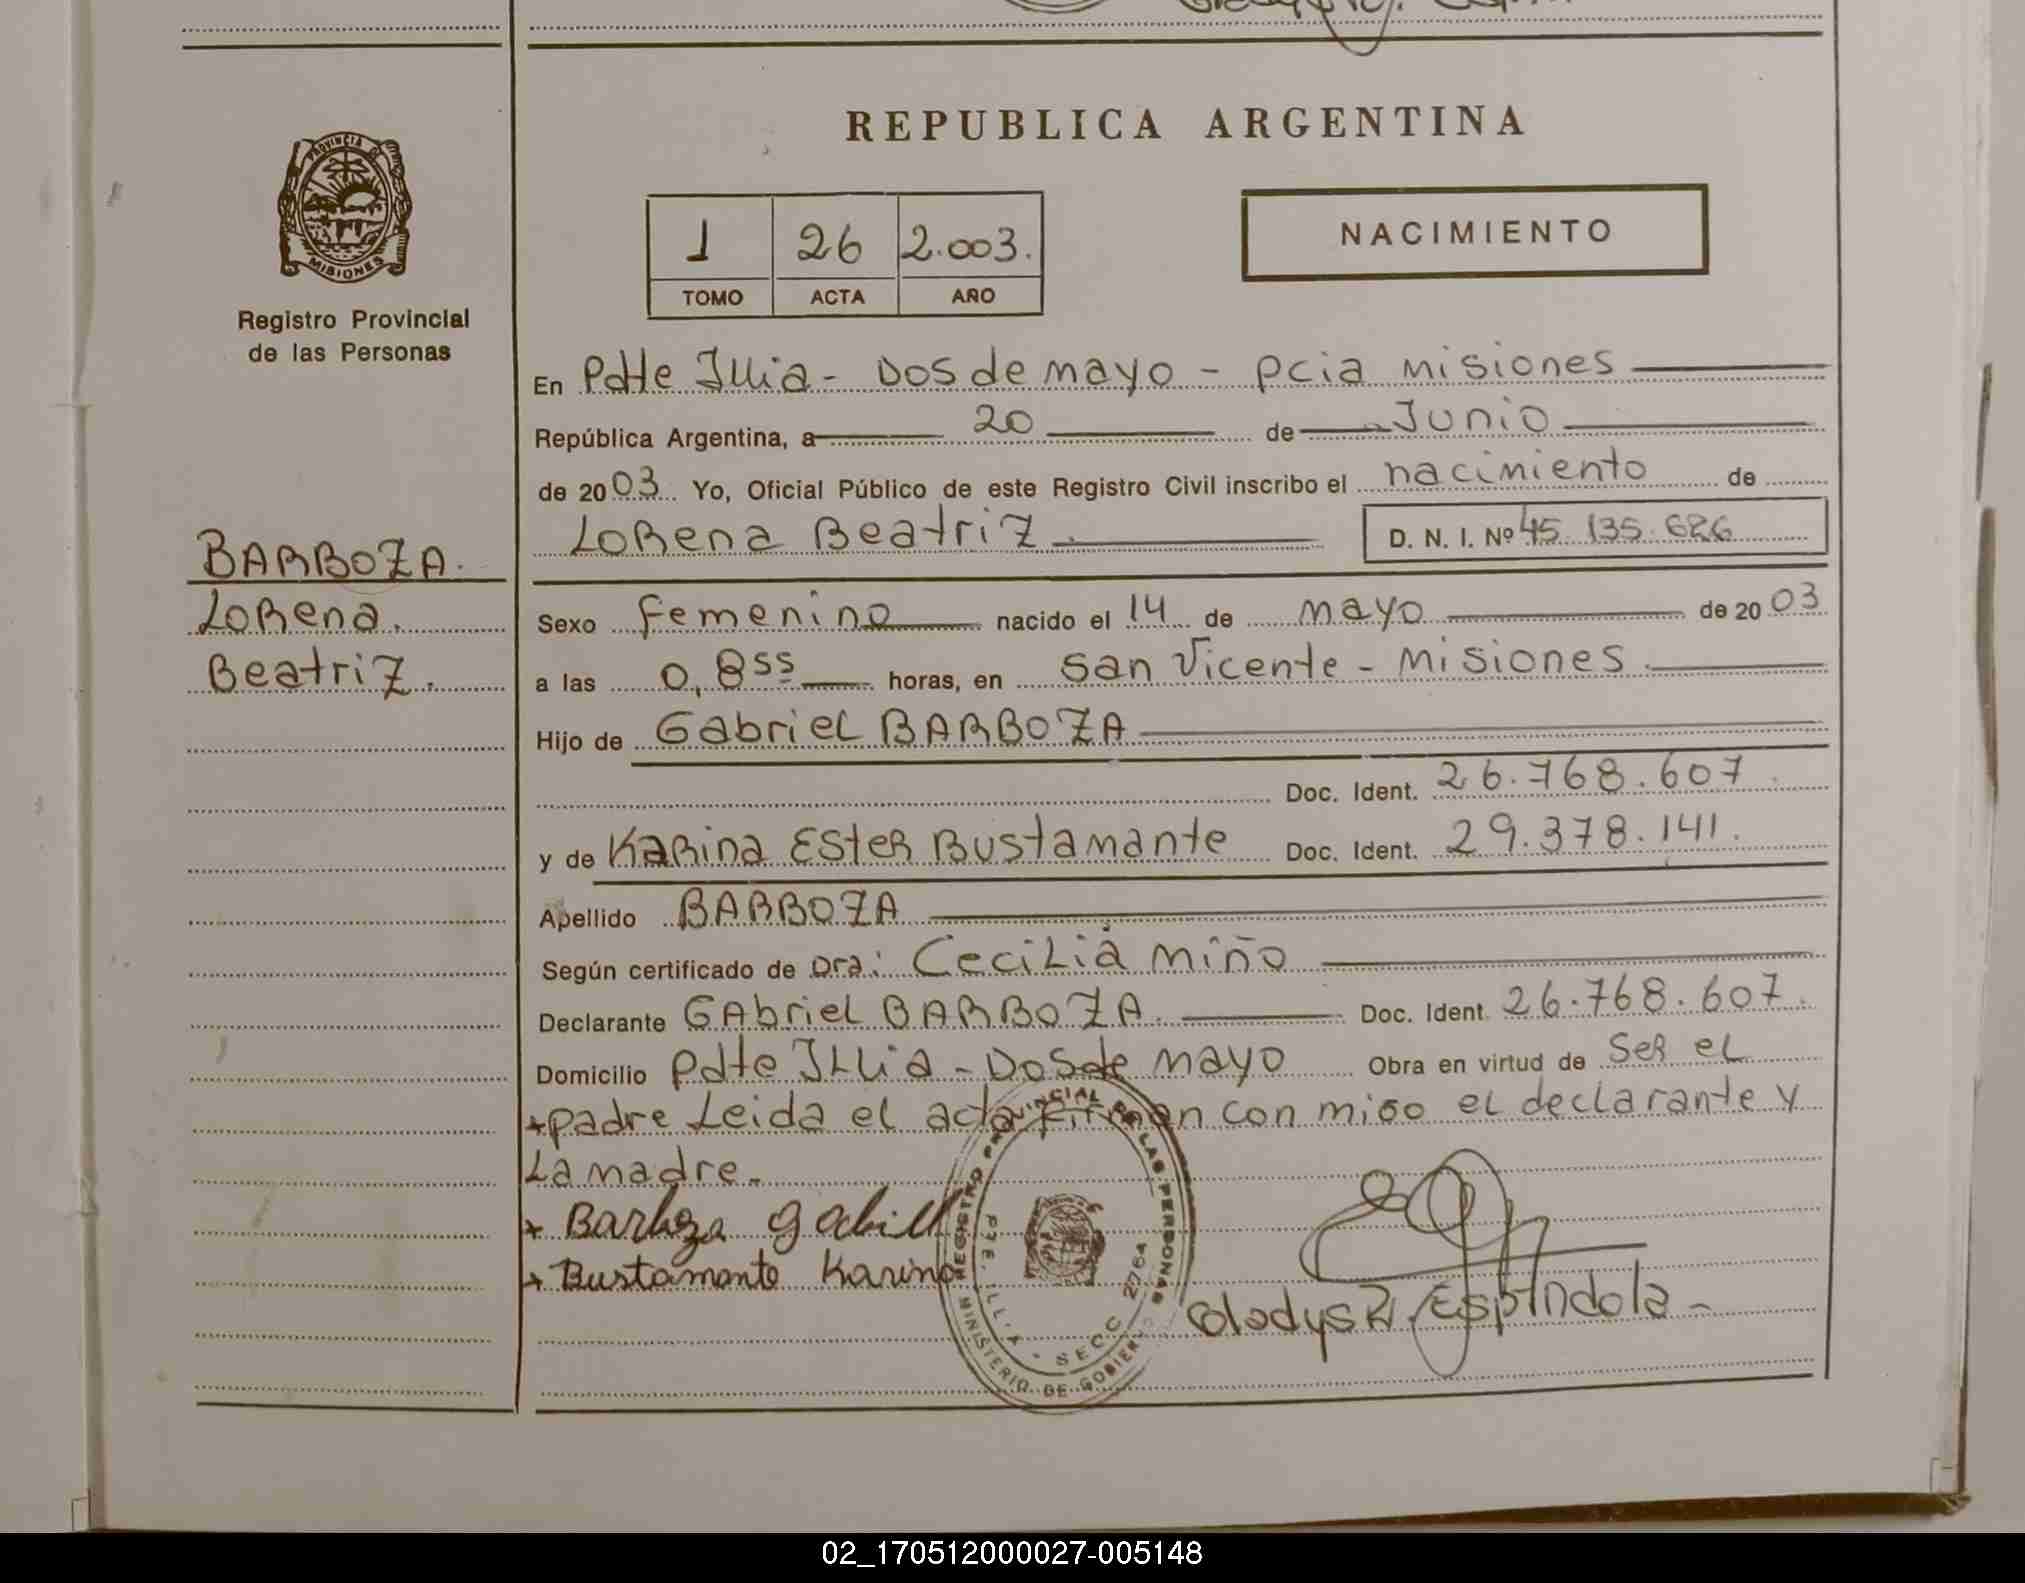 REPUBLICA ARGENTINA
PROVINCIA DE
MISIONES
Registro Provincial
de las Personas
1 26 2.003.
TOMO ACTA AÑO
NACIMIENTO
En Pdte Illia - Dos de mayo - pcia misiones
República Argentina, a 20 de Junio
de 2003 Yo, Oficial Público de este Registro Civil inscribo el nacimiento de
Lorena Beatriz. D. N. I. Nº 45.135.626
BARBOZA.
Lorena.
Beatriz.
Sexo femenino nacido el 14 de mayo de 2003
a las 0,8 55 horas, en San Vicente - Misiones.
Hijo de Gabriel BARBOZA
Doc. Ident. 26.768.607
y de Karina Ester Bustamante Doc. Ident. 29.378.141.
Apellido BARBOZA
Según certificado de Dra: Cecilia miño
Declarante Gabriel BARBOZA. Doc. Ident. 26.768.607.
Domicilio Pdte Illia - Dos de mayo Obra en virtud de ser el
padre Leida el acta firman con migo el declarante y
La madre.
Barboza
Bustamante Karina
Gladys R. Espindola -
REGISTRO PROVINCIAL DE LAS PERSONAS
SECC 2764
MINISTERIO DE GOBIERNO
02_170512000027-005148